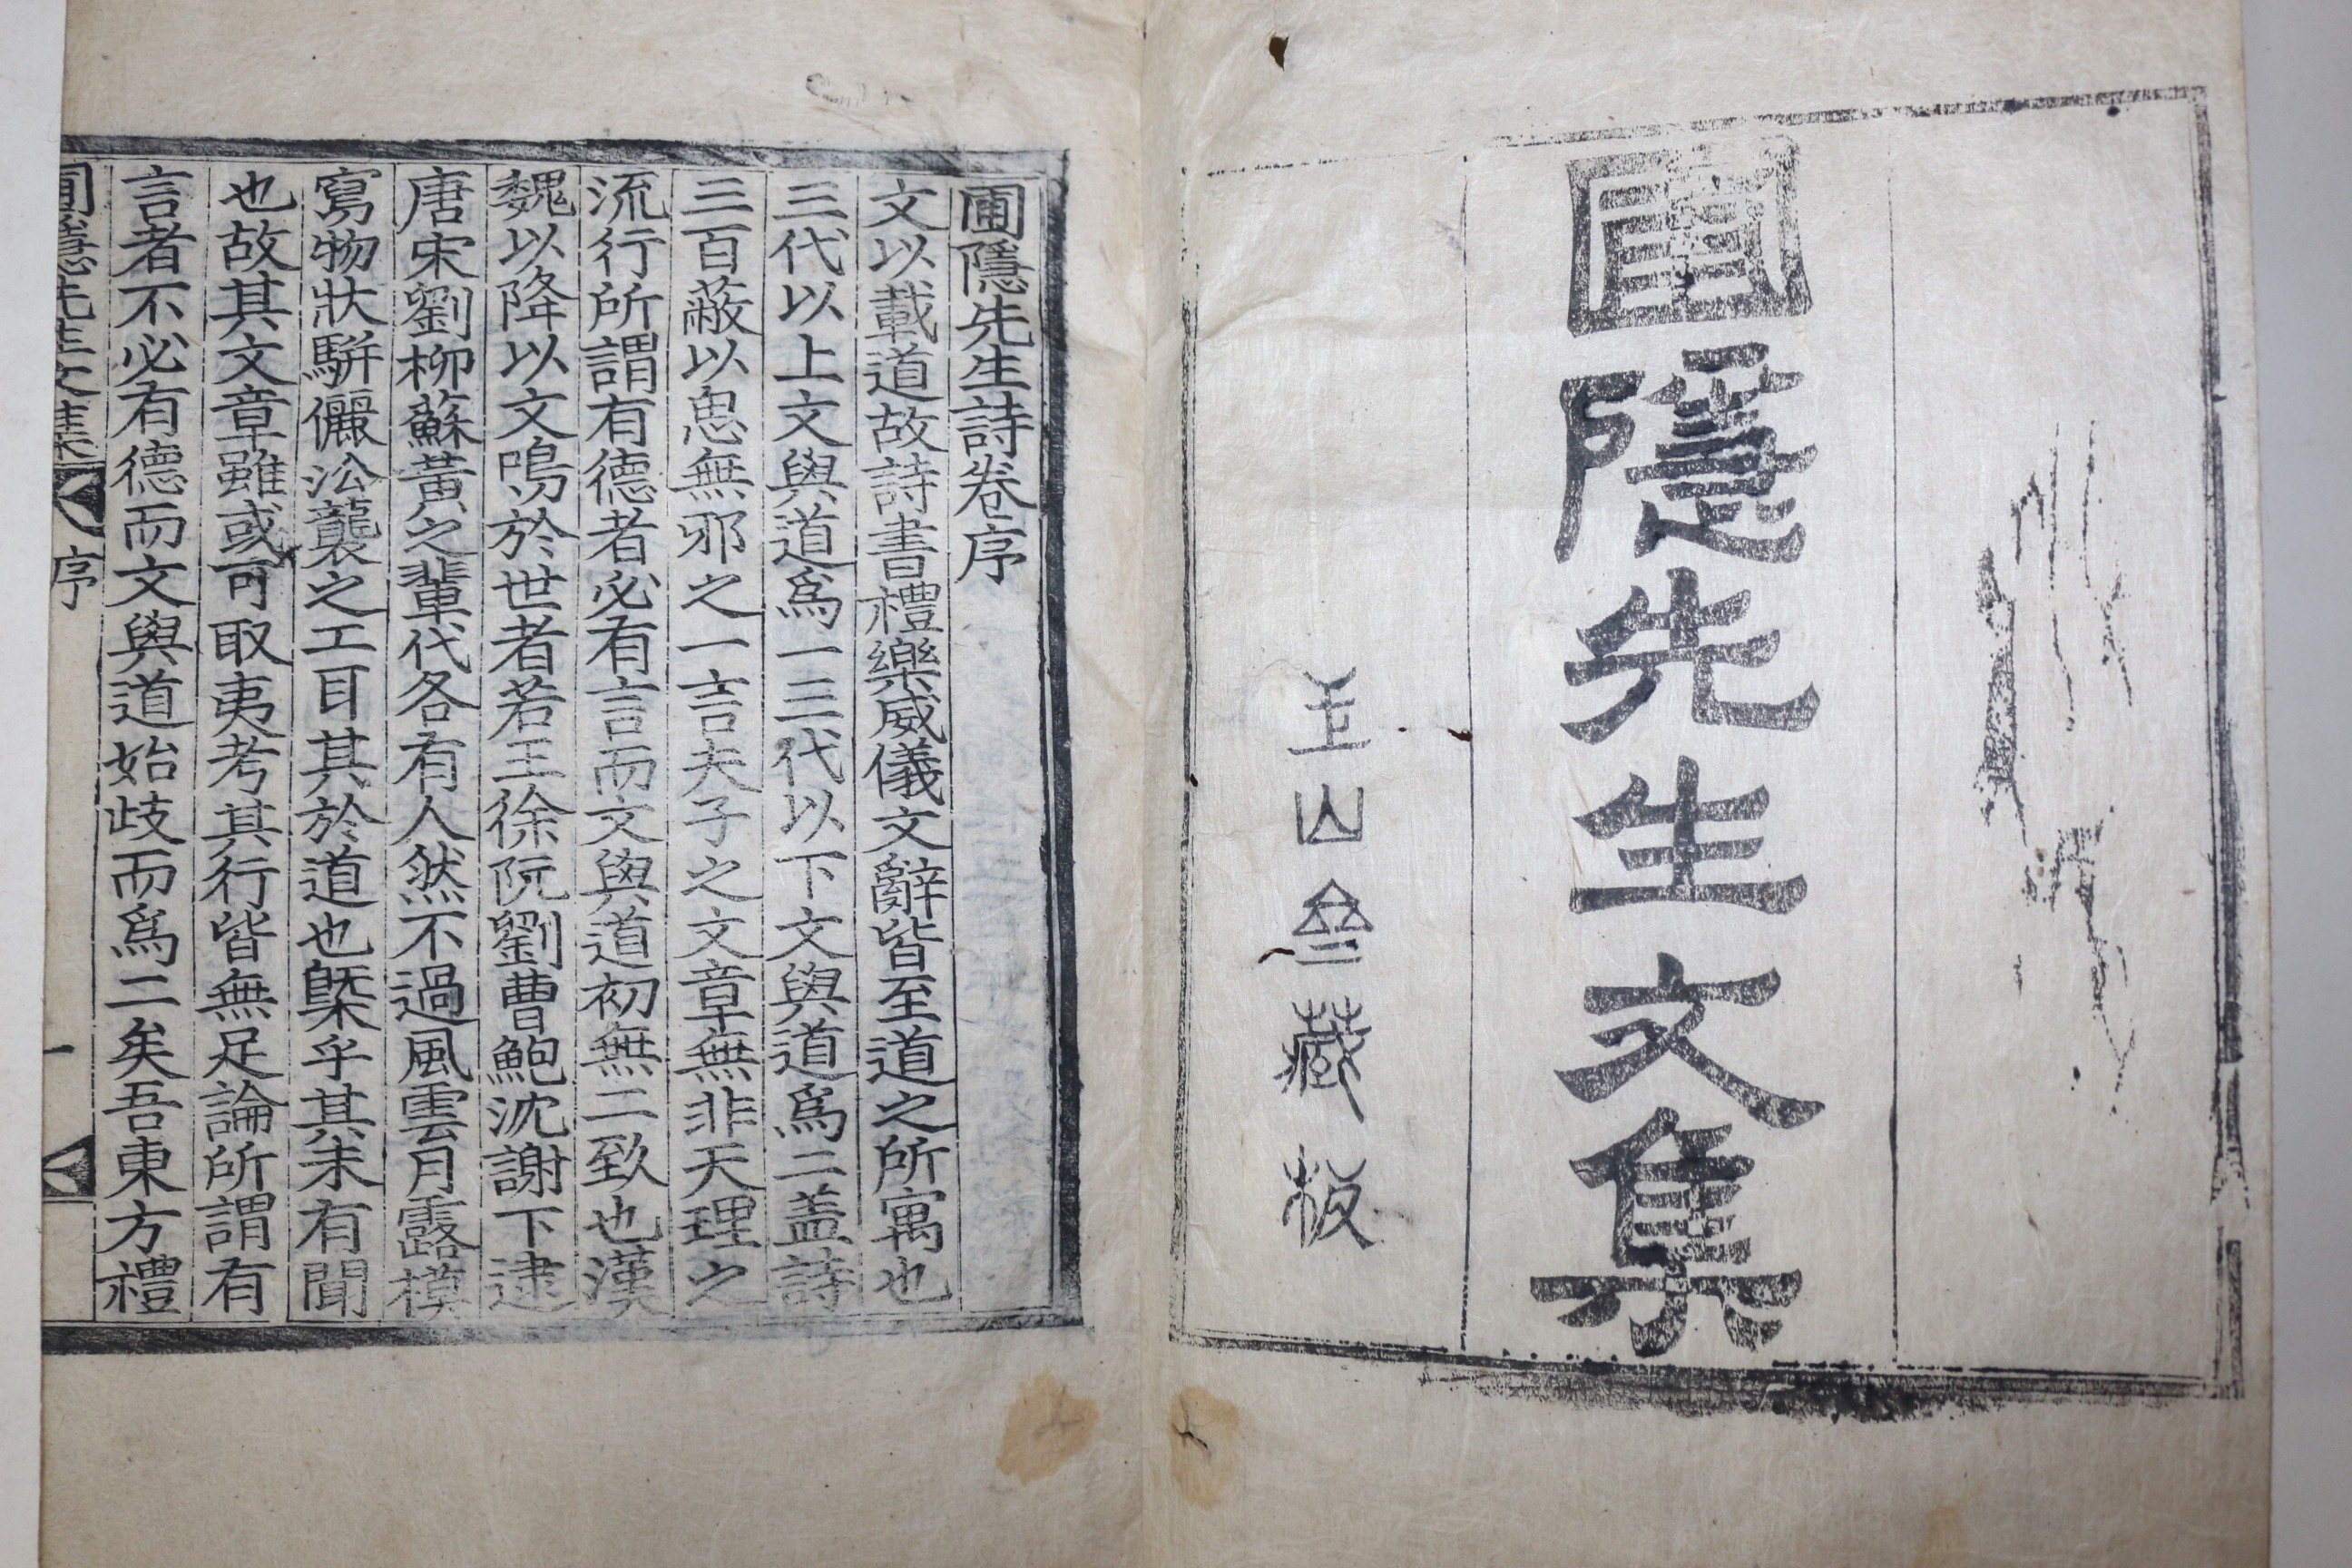 圃隱先生文集
圃隱先生詩卷序
文以載道故詩書禮樂威儀文辭皆至道之所寓也
三代以上文與道爲一三代以下文與道爲二盖詩
三百蔽以思無邪之一言夫子之文章無非天理之
流行所謂有德者必有言而文與道初無二致也漢
魏以降以文鳴於世者若王徐阮劉曹鮑沈謝下逮
唐宋劉柳蘇黃之輩代各有人然不過風雲月露模
寫物狀騈儷㳂襲之工耳其於道也槩乎其未有聞
也故其文章雖或可取夷考其行皆無足論所謂有
言者不必有德而文與道始歧而爲二矣吾東方禮
圃隱先生文集
序
一